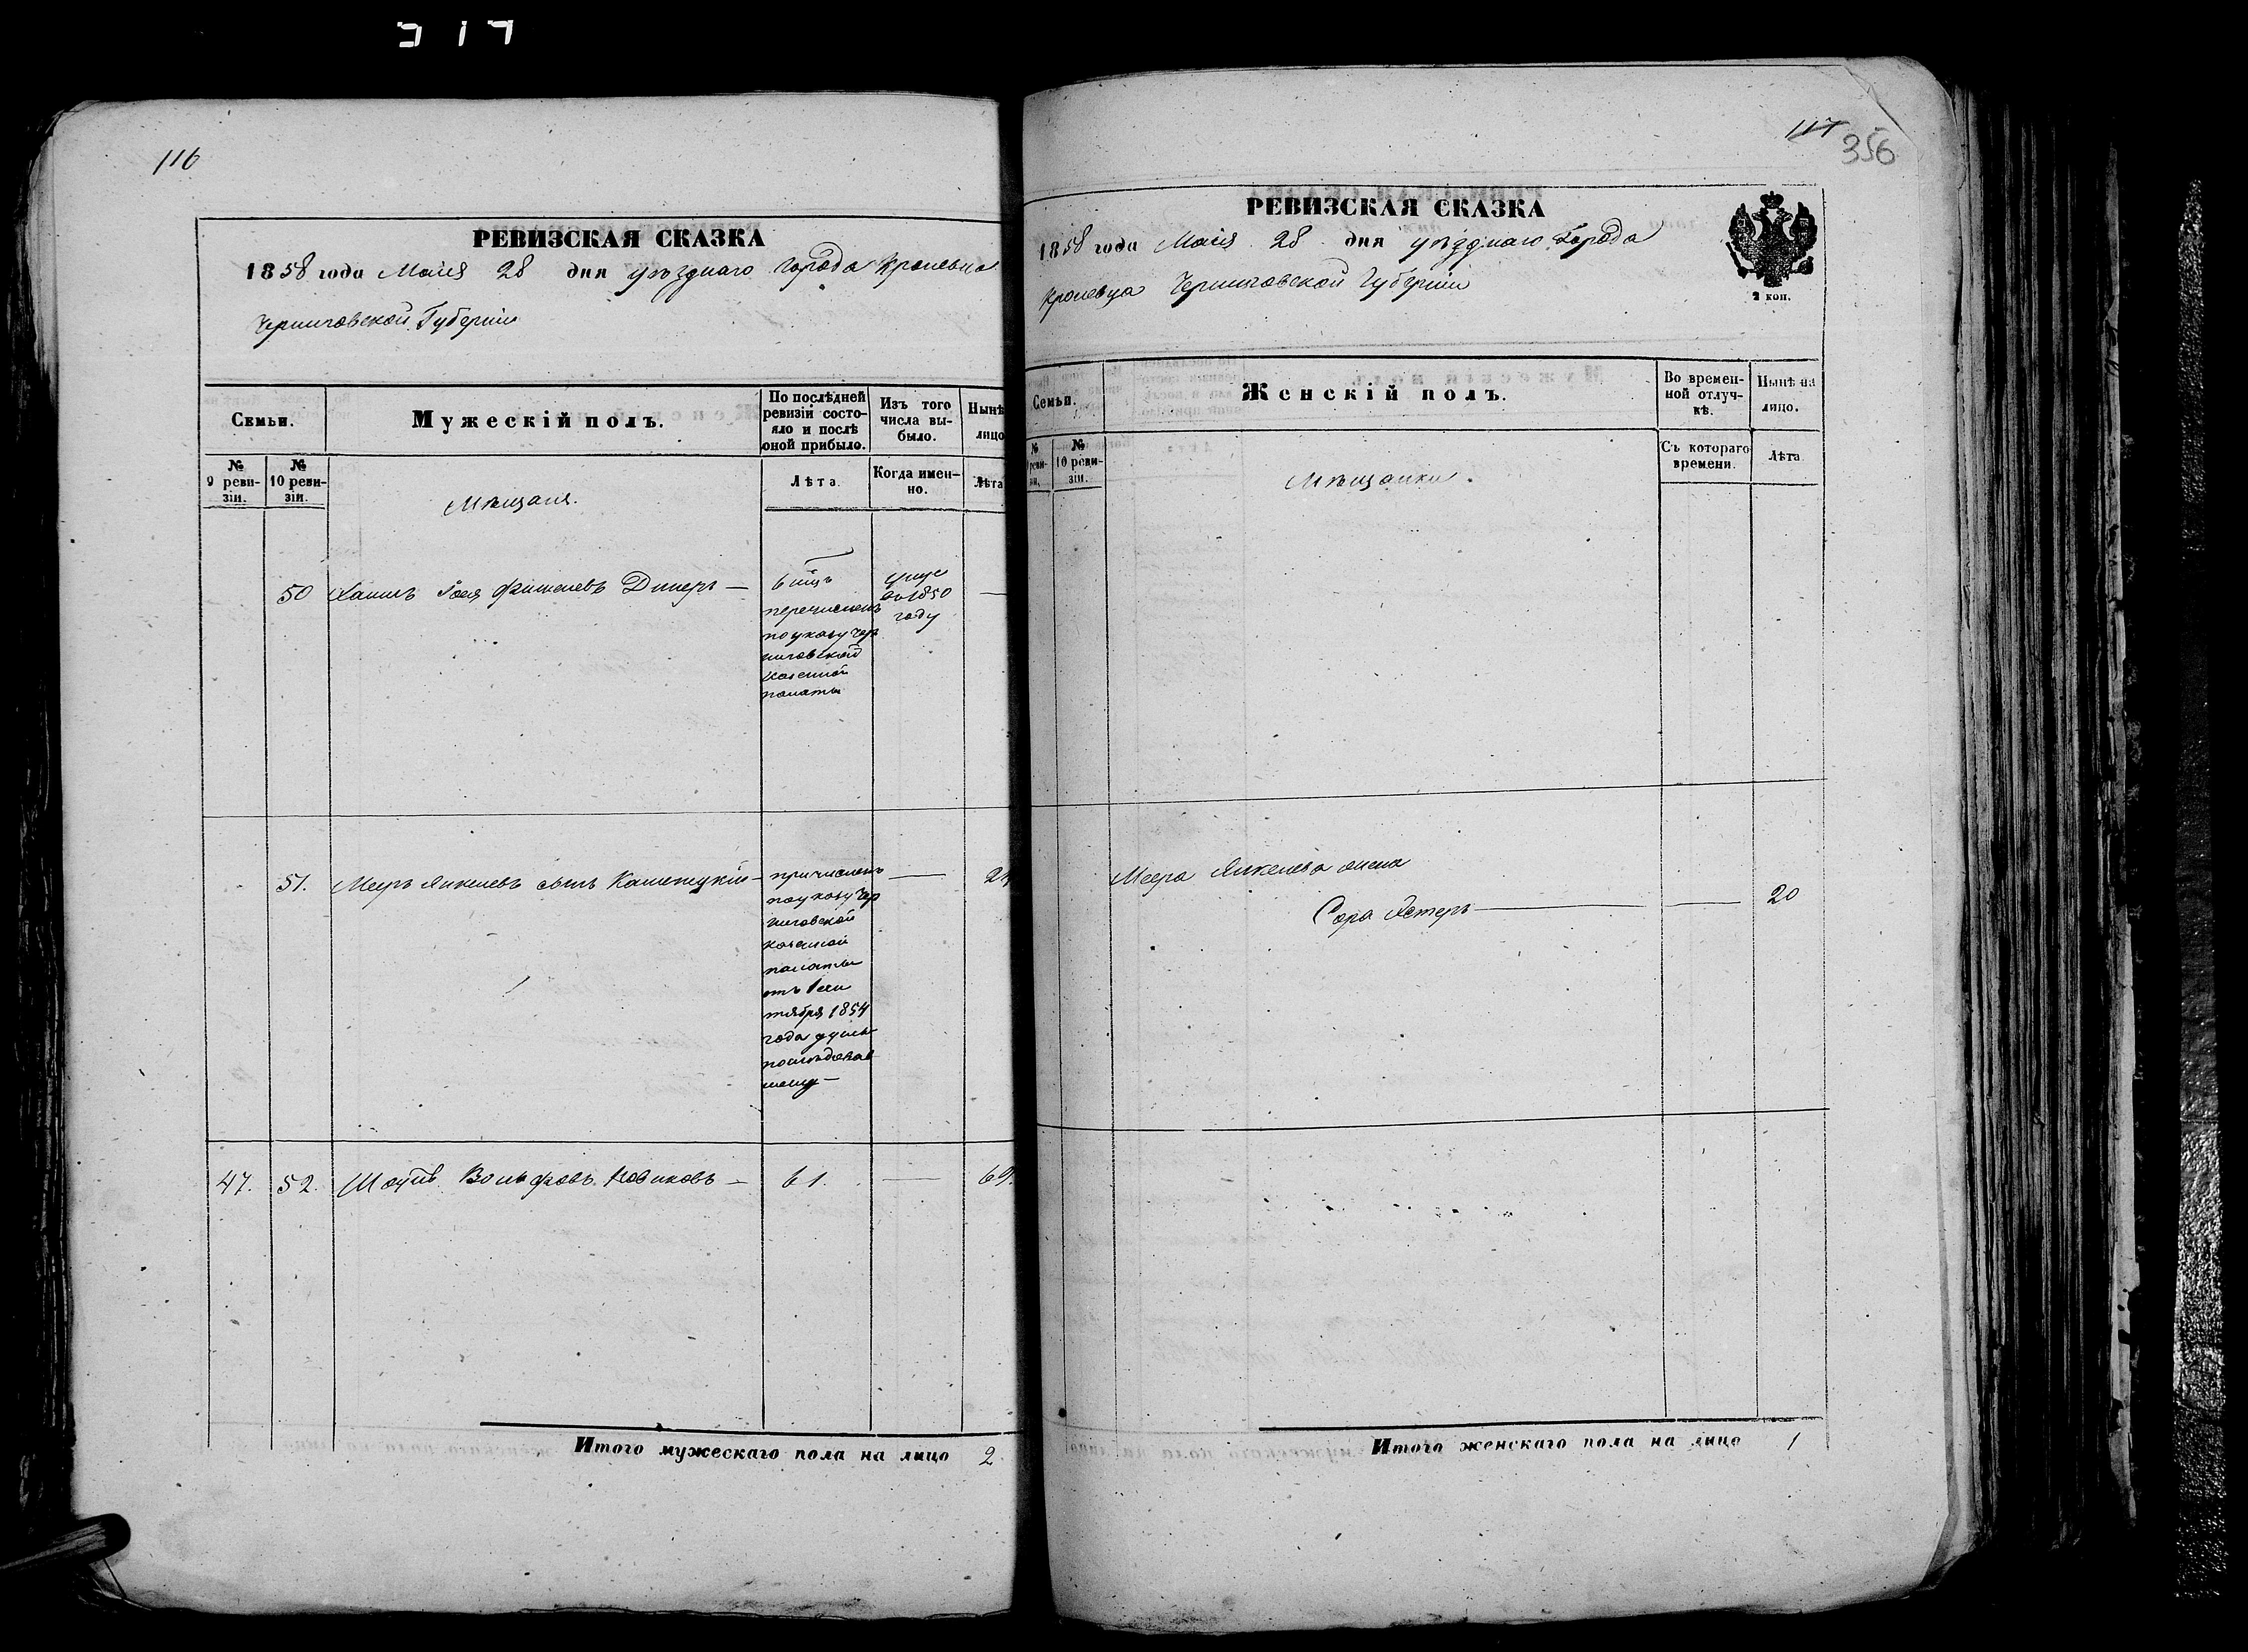 116
РЕВИЗСКАЯ СКАЗКА
1858 года Маія 28 дня уѣзднаго города Кролевца
Черниговской Губерніи
Семьи.
Мужескій полъ.
По послѣдней ревизіи состояло и послѣ оной прибыло.
Изъ того числа выбыло.
Нынѣ
лицо
№ 9 ревизіи.
№ 10 ревизіи.
Мѣщаня.
Лѣта.
Когда именно.
Лѣта
50
перечисленъ
по указу Чер
ниговской
казенной
палаты
1850
году
51. Мееръ Янкелевъ сынъ
причисленъ
по указу Чер
ниговской
казенной
палаты
отъ 1 сен
тября 1854
года
24
47. 52. Вольфовъ Новиковъ — 61. — 69.
Итого мужескаго пола на лицо 2
117
356
РЕВИЗСКАЯ СКАЗКА
1858 года Маія 28 дня уѣзднаго Города
Кролевца Черниговской Губерніи
2 коп.
Семьи.
Женскій полъ.
Во временной отлучкѣ.
Нынѣ на лицо.
№ 10 ревизіи.
Мѣщанки.
Съ котораго времени.
Лѣта
Меера Янкелева жена
Сора Естеръ — — 20
Итого женскаго пола на лицо 1